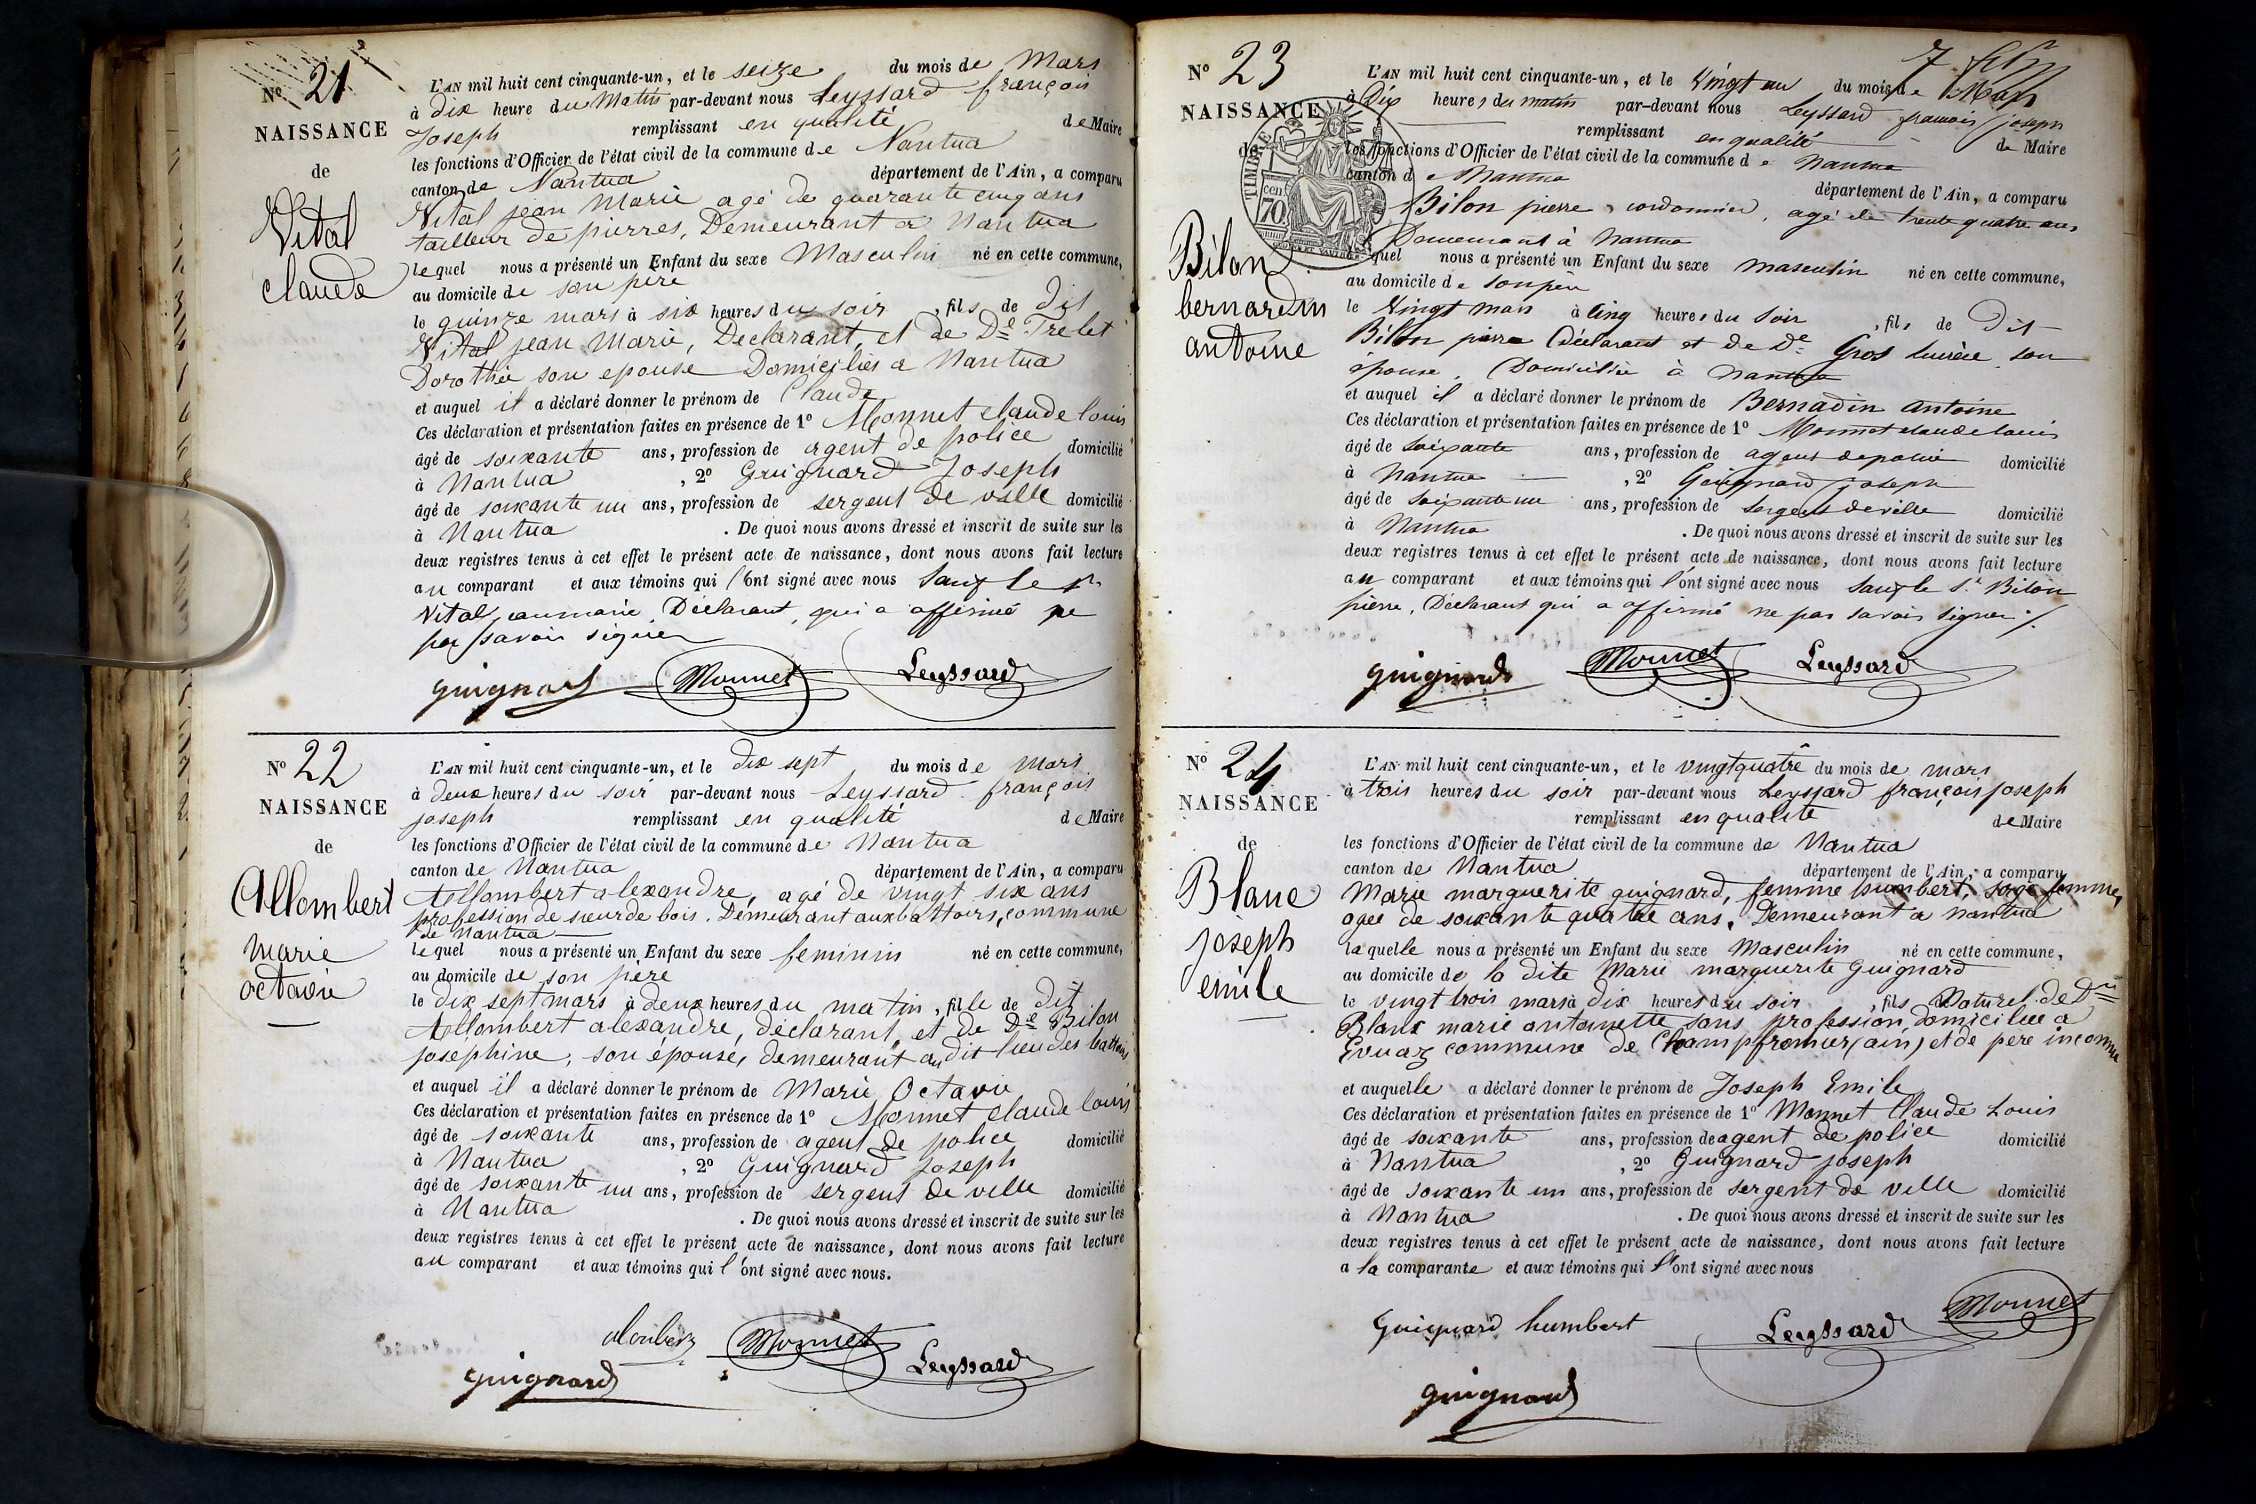 N.º 21
NAISSANCE
de
Vital
Claude
L'AN mil huit cent cinquante-un, et le seize du mois de Mars
à dix heure du Matin par-devant nous Leyssard françois
Joseph remplissant en qualité de Maire
les fonctions d'Officier de l'état civil de la commune de Nantua
canton de Nantua département de l'Ain, a comparu
Vital jean Marie agé de quarante cinq ans
tailleur de pierres, Demeurant a Nantua
lequel nous a présenté un Enfant du sexe Masculin né en cette commune,
au domicile de son père
le quinze mars à six heures du soir, fils de dit
Vital jean Marie, Declarant, et de De Trelet
Dorothée son epouse Domiciliés a Nantua
et auquel il a déclaré donner le prénom de Claude
Ces déclaration et présentation faites en présence de 1º Monnet claude louis
âgé de soixante ans, profession de agent de police domicilié
à Nantua, 2º Guignard Joseph
âgé de soixante un ans, profession de sergent de ville domicilié
à Nantua. De quoi nous avons dressé et inscrit de suite sur les
deux registres tenus à cet effet le présent acte de naissance, dont nous avons fait lecture
au comparant et aux témoins qui l'ont signé avec nous sauf le Sr
Vital jean marie, Déclarant, qui a affirmé ne
pas savoir signer
guignard Monnet Leyssard
N.º 22
NAISSANCE
de
Allombert
Marie
octavie
L'AN mil huit cent cinquante-un, et le dix sept du mois de Mars
à deux heures du soir par-devant nous Leyssard françois
joseph remplissant en qualité de Maire
les fonctions d'Officier de l'état civil de la commune de Nantua
canton de Nantua département de l'Ain, a comparu
Allombert alexandre, agé de vingt six ans
profession de scieur de bois. Demeurant aux battoirs, commune
de Nantua
lequel nous a présenté un Enfant du sexe feminin né en cette commune,
au domicile de son père
le dix sept mars à deux heures du matin, fille de dit
Allombert alexandre, déclarant, et de De Bilon
josephine, son épouse, demeurant au dit lieu des battoirs
et auquel il a déclaré donner le prénom de Marie Octavie
Ces déclaration et présentation faites en présence de 1º Monnet claude louis
âgé de soixante ans, profession de agent de police domicilié
à Nantua, 2º Guignard Joseph
âgé de soixante un ans, profession de sergent de ville domicilié
à Nantua. De quoi nous avons dressé et inscrit de suite sur les
deux registres tenus à cet effet le présent acte de naissance, dont nous avons fait lecture
au comparant et aux témoins qui l'ont signé avec nous.
Monnet
guignard Leyssard
7
N.º 23
NAISSANCE
de
TIMBRE
cen. 70
Bilon
bernardin
antoine
L'AN mil huit cent cinquante-un, et le vingt un du mois de Mars
à Dix heures du matin par-devant nous Leyssard françois joseph
remplissant en qualité de Maire
les fonctions d'Officier de l'état civil de la commune de Nantua
canton de Nantua département de l'Ain, a comparu
Bilon pierre, cordonnier, agé de trente quatre ans
Demeurant à Nantua
quel nous a présenté un Enfant du sexe masculin né en cette commune,
au domicile de son père
le Vingt mars à Cinq heures du Soir, fils de Dit
Bilon pierre Déclarant et de De Gros son
épouse, Domiciliés à Nantua
et auquel il a déclaré donner le prénom de Bernadin Antoine
Ces déclaration et présentation faites en présence de 1º Monnet claude louis
âgé de soixante ans, profession de agent de police domicilié
à Nantua, 2º Guignard joseph
âgé de soixante un ans, profession de sergent de ville domicilié
à Nantua. De quoi nous avons dressé et inscrit de suite sur les
deux registres tenus à cet effet le présent acte de naissance, dont nous avons fait lecture
au comparant et aux témoins qui l'ont signé avec nous sauf le Sr Bilon
pierre, Déclarant qui a affirmé ne pas savoir signer ./.
guignard Monnet Leyssard
N.º 24
NAISSANCE
de
Blanc
joseph
emile
L'AN mil huit cent cinquante-un, et le vingt quatre du mois de mars
à trois heures du soir par-devant nous Leyssard françois joseph
remplissant en qualité de Maire
les fonctions d'Officier de l'état civil de la commune de Nantua
canton de Nantua département de l'Ain, a comparu
Marie marguerite guignard, femme humbert, sage femme,
agée de soixante quatre ans, Demeurant a nantua
laquelle nous a présenté un Enfant du sexe Masculin né en cette commune,
au domicile de la dite Marie marguerite Guignard
le vingt trois mars à dix heures du soir, fils Naturel de Dlle
Blanc marie antoinette sans profession, domiciliée a
Evuaz commune de Champfromier (ain) et de père inconnu
et auquelle a déclaré donner le prénom de Joseph Emile
Ces déclaration et présentation faites en présence de 1º Monnet Claude Louis
âgé de soixante ans, profession de agent de police domicilié
à Nantua, 2º Guignard joseph
âgé de soixante un ans, profession de sergent de ville domicilié
à Nantua. De quoi nous avons dressé et inscrit de suite sur les
deux registres tenus à cet effet le présent acte de naissance, dont nous avons fait lecture
a la comparante et aux témoins qui l'ont signé avec nous
Guignard humbert Leyssard Monnet
guignard